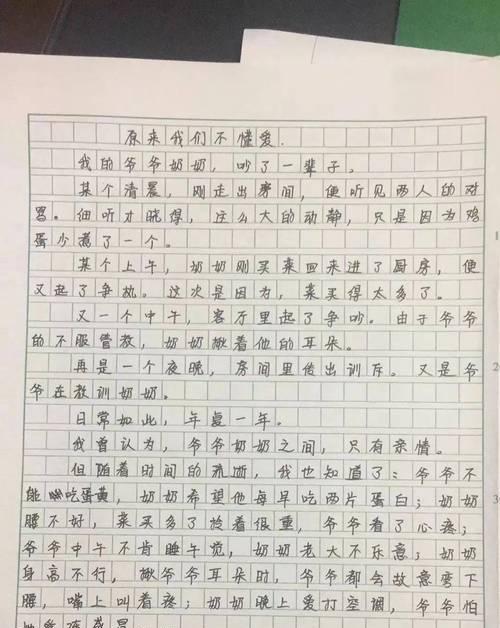 原来我们不懂爱.
我的爷爷奶奶，吵了一辈子。
某个清晨，刚走出房间，便听见两人的对
骂。细听才晓得，这么大的动静，只是因为鸡
蛋少煮了一个。
某个上午，奶奶刚买菜回来进了厨房，便
又起了争执。这次是因为，菜买得太多了。
又一个中午，客厅里起了争吵。由于爷爷
的不服管教，奶奶揪着他的耳朵。
再是一个夜晚，房间里传出训斥。又是爷
爷在教训奶奶。
日常如此，年复一年。
我曾认为，爷爷奶奶之间，只有亲情。
但随着时间的流逝，我也知道了：爷爷不
能吃蛋黄，奶奶希望他每早吃两片蛋白；奶奶
腰不好，菜买多了拎着很重，爷爷看了心疼；
爷爷中午不肯睡午觉，奶奶老大不乐意；奶奶
身高不行，揪爷爷耳朵时，爷爷都会故意弯下
腰，嘴上叫着疼；奶奶晚上爱打空调，爷爷怕
1
2
3